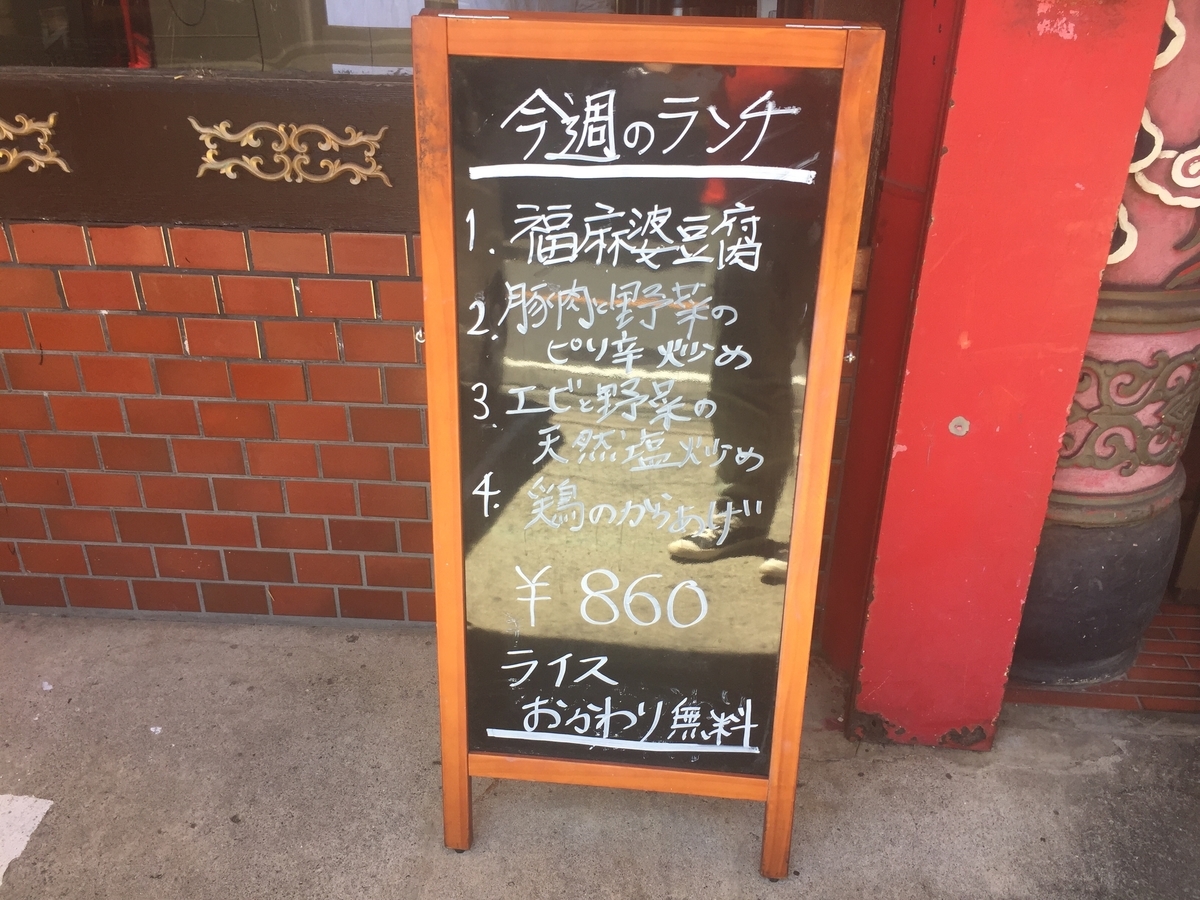 今週のランチ
1. 福麻婆豆腐
2. 豚肉と野菜の
ピリ辛炒め
3. エビと野菜の
天然塩炒め
4. 鶏のからあげ
¥860
ライス
おかわり無料